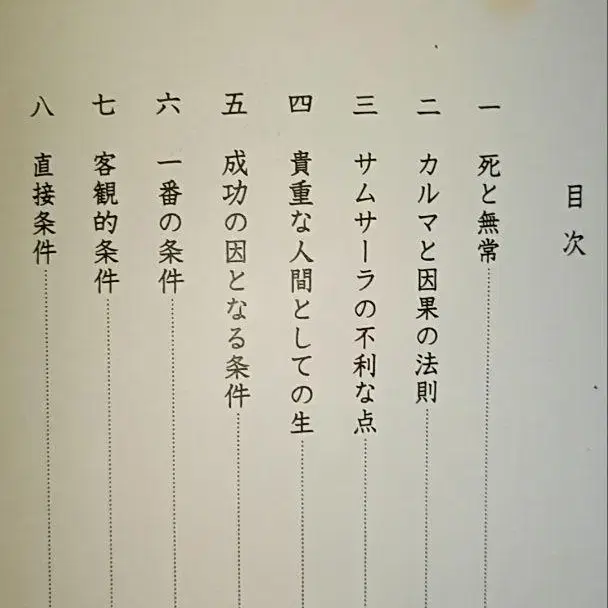 目次
一 死と無常
二 カルマと因果の法則
三 サムサーラの不利な点
四 貴重な人間としての生
五 成功の因となる条件
六 一番の条件
七 客観的条件
八 直接条件